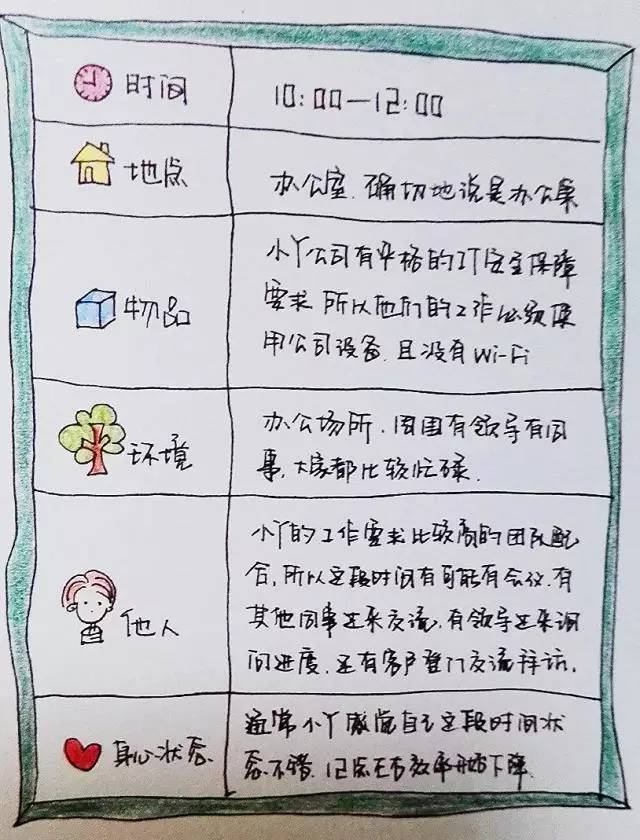 时间
10:00—12:00
地点
办公室.确切地说是办公桌
物品
小丫公司有严格的IT安全保障
要求.所以他们的工作必须使
用公司设备.且没有Wi-Fi
环境
办公场所.周围有领导有同
事,大家都比较忙碌.
他人
小丫的工作要求比较高的团队配
合,所以这段时间有可能有会议.有
其他同事过来交流,有领导过来询
问进度.还有客户登门交流拜访.
身心状态
通常小丫感觉自己这段时间状
态不错.12点左右效率开始下降.